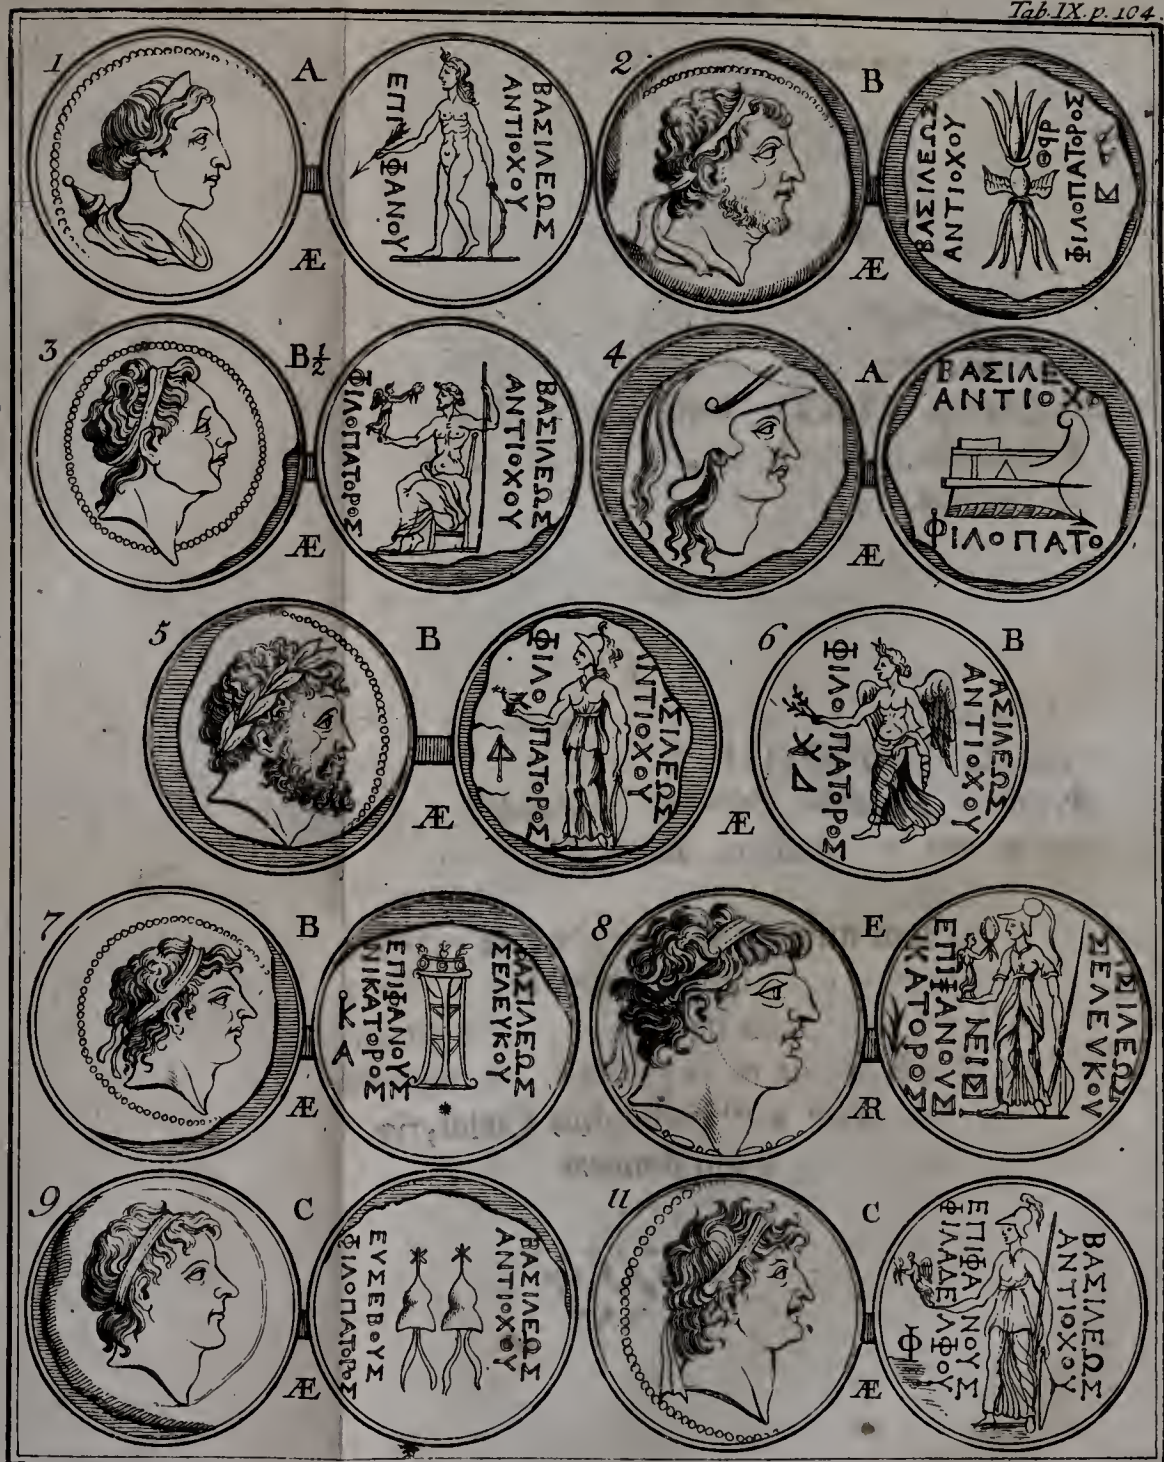 Tab. IX. p. 104.
1
A
ΒΑΣΙΛΕΩΣ
ΑΝΤΙΟΧΟΥ
ΕΠΙΦΑΝΟΥ
Æ
2
B
ΒΑΣΙΛΕΩΣ
ΑΝΤΙΟΧΟΥ
ΘϘΡ
ΦΙΛΟΠΑΤΟΡΟΣ
Æ
3
B½
ΒΑΣΙΛΕΩΣ
ΑΝΤΙΟΧΟΥ
ΦΙΛΟΠΑΤΟΡΟΣ
Æ
4
A
ΒΑΣΙΛΕ
ΑΝΤΙΟΧ
ΦΙΛΟΠΑΤΟ
Æ
5
B
ΑΣΙΛΕΩΣ
ΝΤΙΟΧΟΥ
ΦΙΛΟΠΑΤΟΡΟΣ
Æ
6
B
ΑΣΙΛΕΩΣ
ΑΝΤΙΟΧΟΥ
ΦΙΛΟΠΑΤΟΡΟΣ
Δ
Æ
7
B
ΒΑΣΙΛΕΩΣ
ΣΕΛΕΥΚΟΥ
ΕΠΙΦΑΝΟΥΣ
ΝΙΚΑΤΟΡΟΣ
Α
Æ
8
E
ΣΙΛΕΩΣ
ΣΕΛΕΥΚΟΥ
ΕΠΙΦΑΝΟΥΣ
ΙΚΑΤΟΡΟΣ
ΝΕΙ
ÆR
9
C
ΒΑΣΙΛΕΩΣ
ΑΝΤΙΟΧΟΥ
ΕΥΣΕΒΟΥΣ
ΦΙΛΟΠΑΤΟΡΟΣ
Æ
11
C
ΒΑΣΙΛΕΩΣ
ΑΝΤΙΟΧΟΥ
ΕΠΙΦΑΝΟΥΣ
ΦΙΛΑΔΕΛΦΟΥ
Φ
Æ